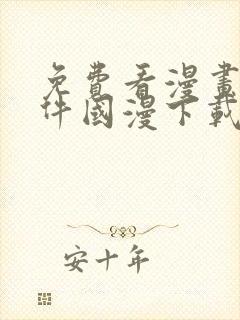 免費看漫畫
件國漫下載
安十年